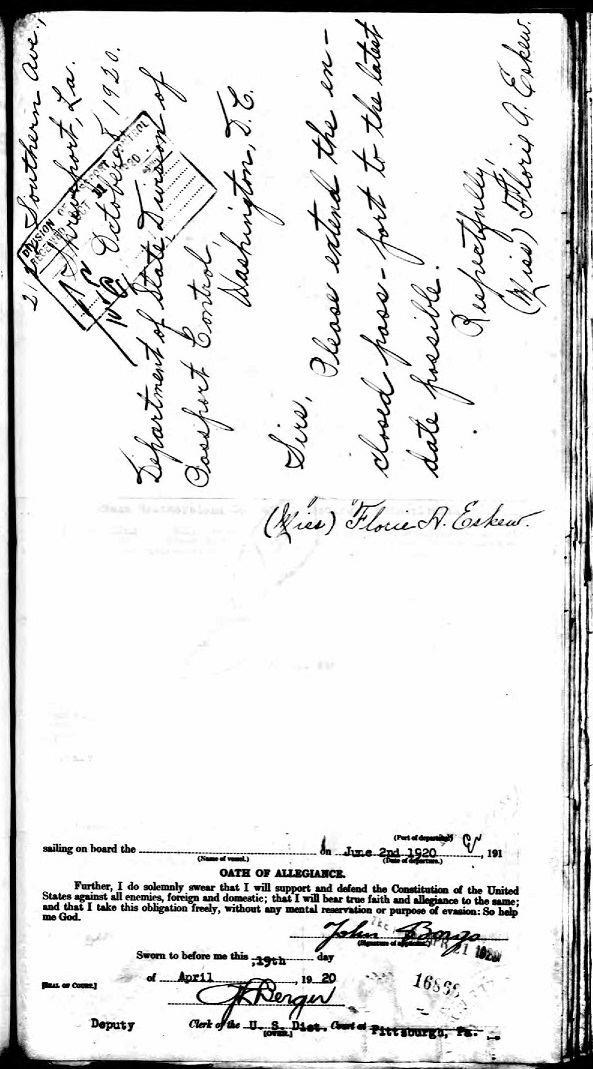 Southern Ave.,
Shreveport, La.
October 8, 1920.
Department of State Division of
Passport Control,
Washington, D.C.
Sirs,
Please extend the en-
closed pass-port to the latest
date possible.
Respectfully,
(Miss) Floris A. Eskew.
DIVISION OF PASSPORT CONTROL
RECEIVED OCT
(Miss) "Florie A. Eskew.
(Port of departure)
sailing on board the on June 2nd 1920, 191
(Name of vessel.) (Date of departure.)
OATH OF ALLEGIANCE.
Further, I do solemnly swear that I will support and defend the Constitution of the United
States against all enemies, foreign and domestic; that I will bear true faith and allegiance to the same;
and that I take this obligation freely, without any mental reservation or purpose of evasion: So help
me God.
John Borgo
(Signature of applicant)
APR 21 1920
Sworn to before me this 19th day
of April, 1920
[SEAL OF COURT.]
Deputy Clerk of the U. S. Dist. Court at Pittsburgh, Pa.
[OVER.]